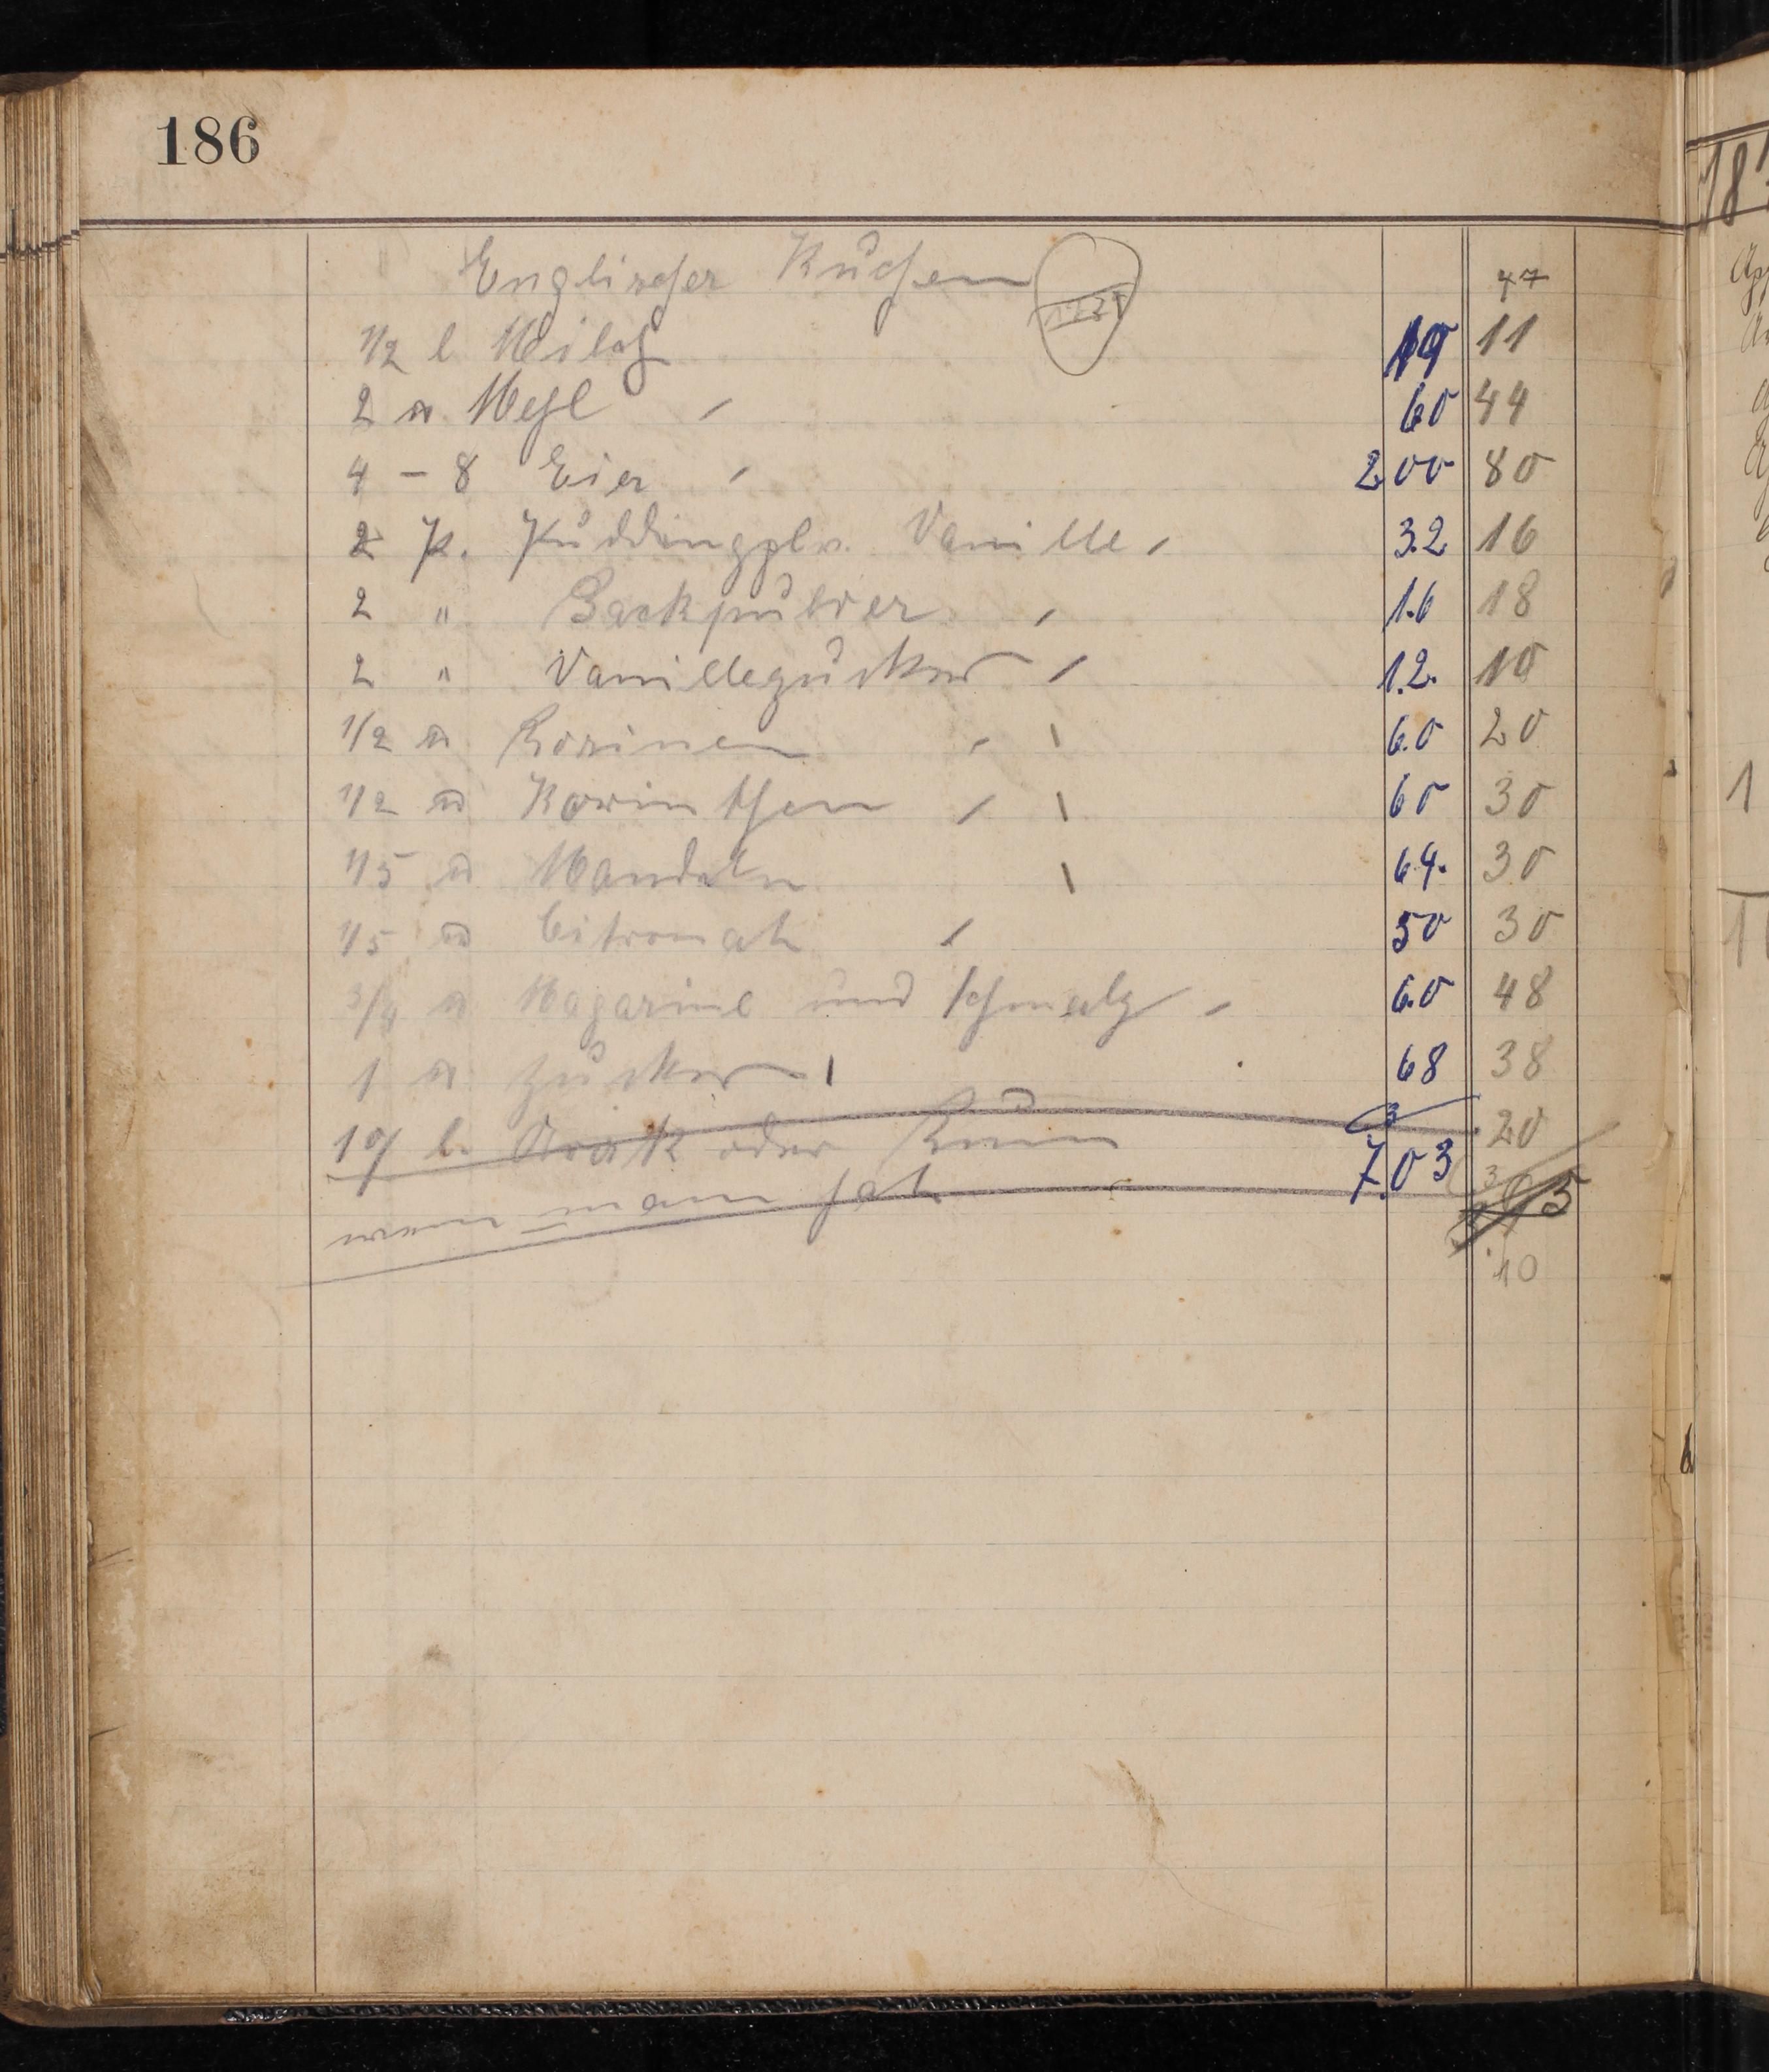 186
Englischer Kuchen 47
1/2 l Milch 11
2 ℔ Mehl 60 44
4 - 8 Eier 2 00 80
2 P. Puddingplv. Vanille 3.2 16
2 " Backpulver 1.6 18
2 " Vanillezucker 1.2. 10
1/2 ℔ Rosinen 6.0 20
1/2 ℔ Korinthen 60 30
1/5 ℔ Mandeln 64. 30
1/5 ℔ Citronat 50 30
3/4 ℔ Magarine und Schmalz 6.0 48
1 ℔ Zucker 68 38
l. Arak oder Rum 20
wenn man hat 7.03
10